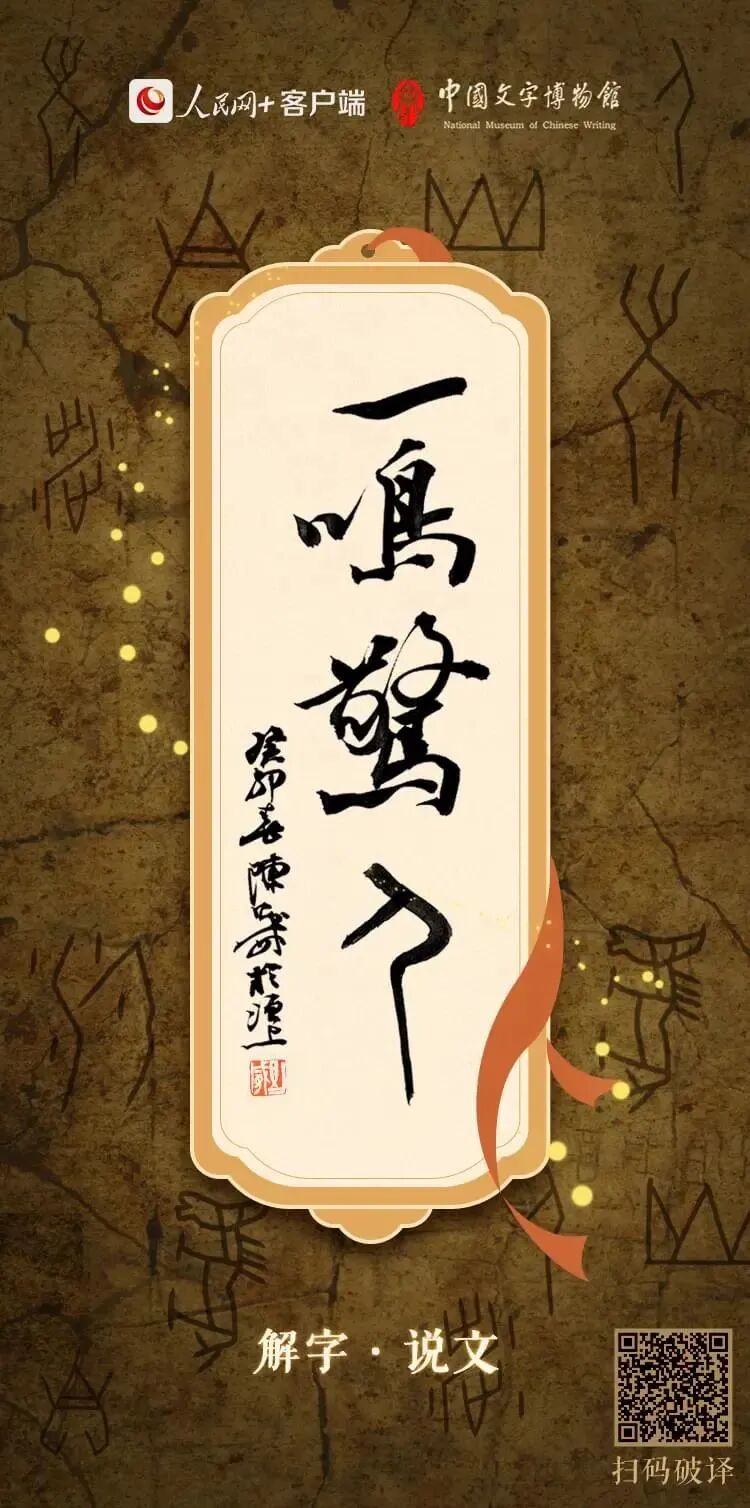 人民网+客户端
中國文字博物館
National Museum of Chinese Writing
一鳴驚人
癸卯春陳
解字·说文
扫码破译